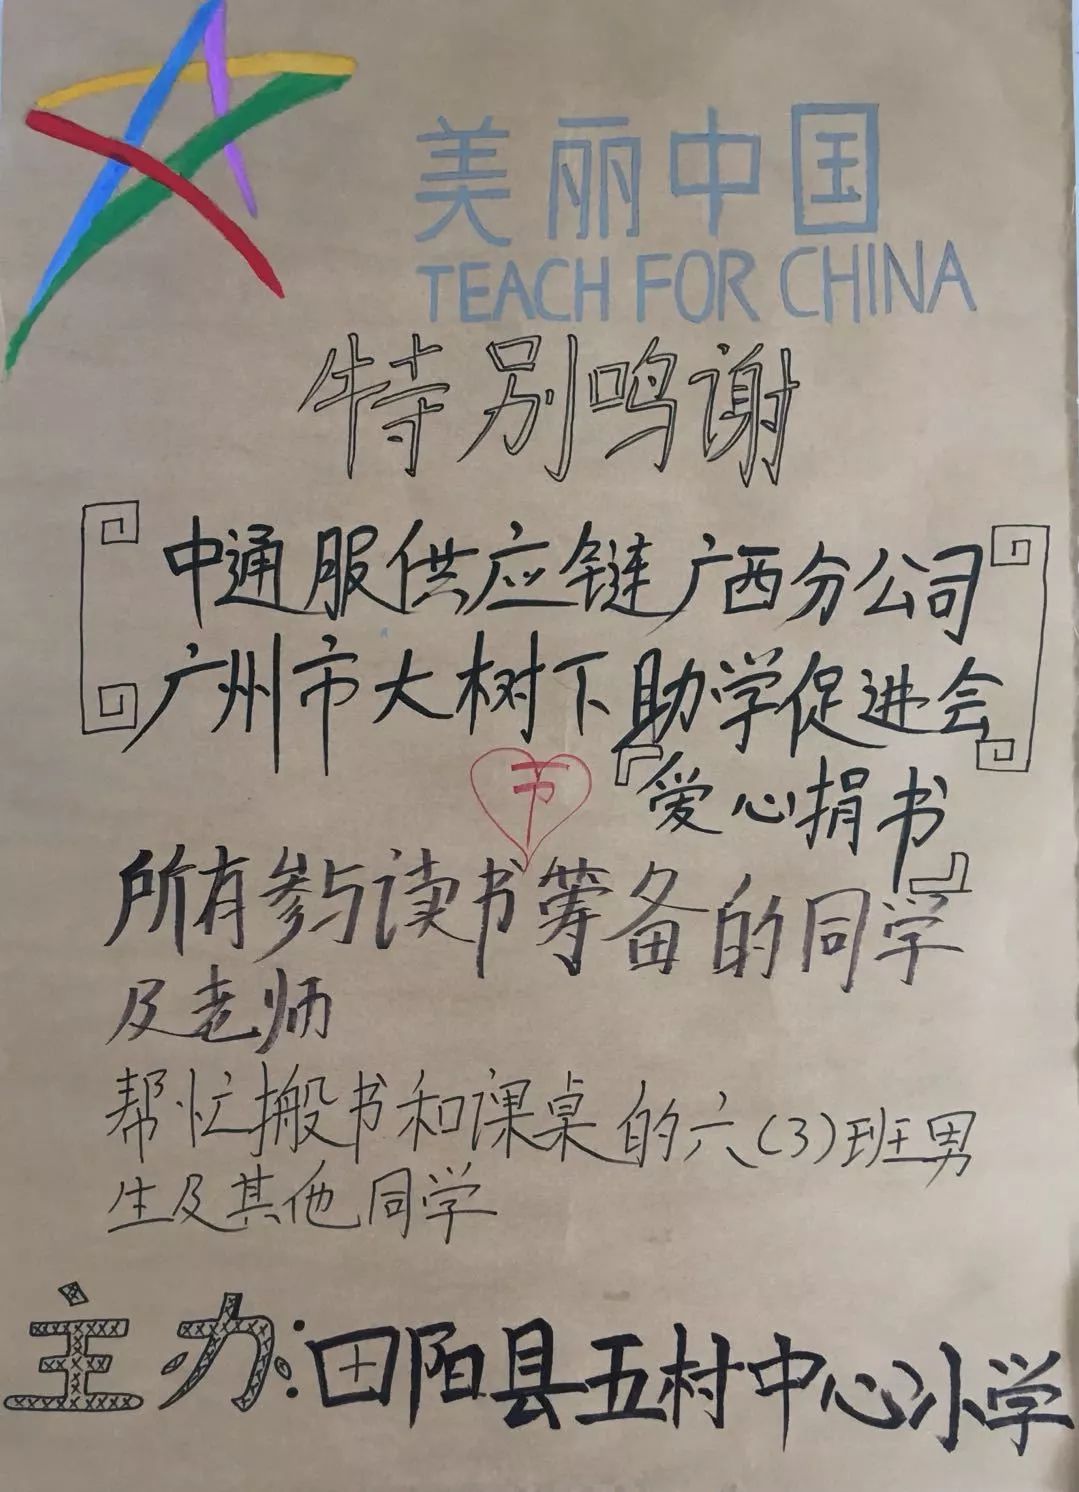 美丽中国
TEACH FOR CHINA
特别鸣谢
中通服供应链广西分公司
广州市大树下助学促进会
『爱心捐书』
所有参与读书筹备的同学
及老师
帮忙搬书和课桌的六(3)班男
生及其他同学
主办:田阳县五村中心小学